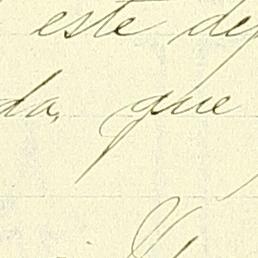 este de
da, que